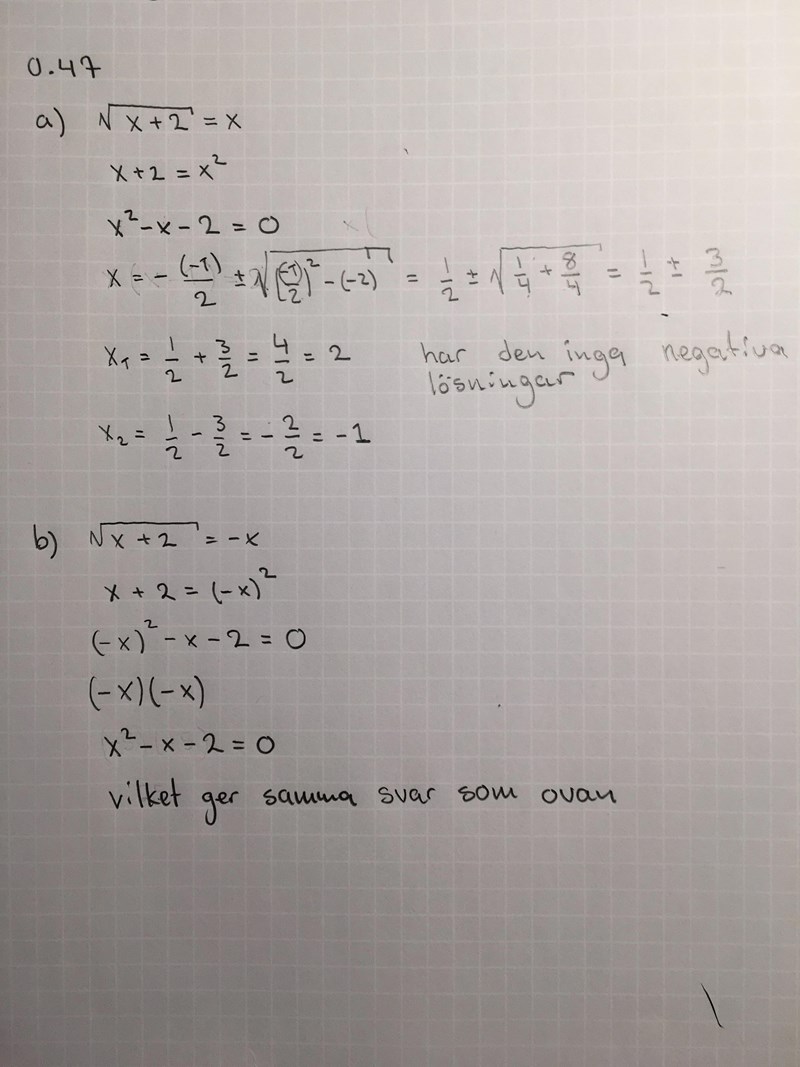 0.47
a) √(x+2) = x
x+2 = x²
x²-x-2 = 0
x = -(-1)/2 ± √((-1/2)² - (-2)) = 1/2 ± √(1/4 + 8/4) = 1/2 ± 3/2
x₁ = 1/2 + 3/2 = 4/2 = 2 har den inga negativa
lösningar
x₂ = 1/2 - 3/2 = -2/2 = -1
b) √(x+2) = -x
x + 2 = (-x)²
(-x)² - x - 2 = 0
(-x)(-x)
x² - x - 2 = 0
vilket ger samma svar som ovan